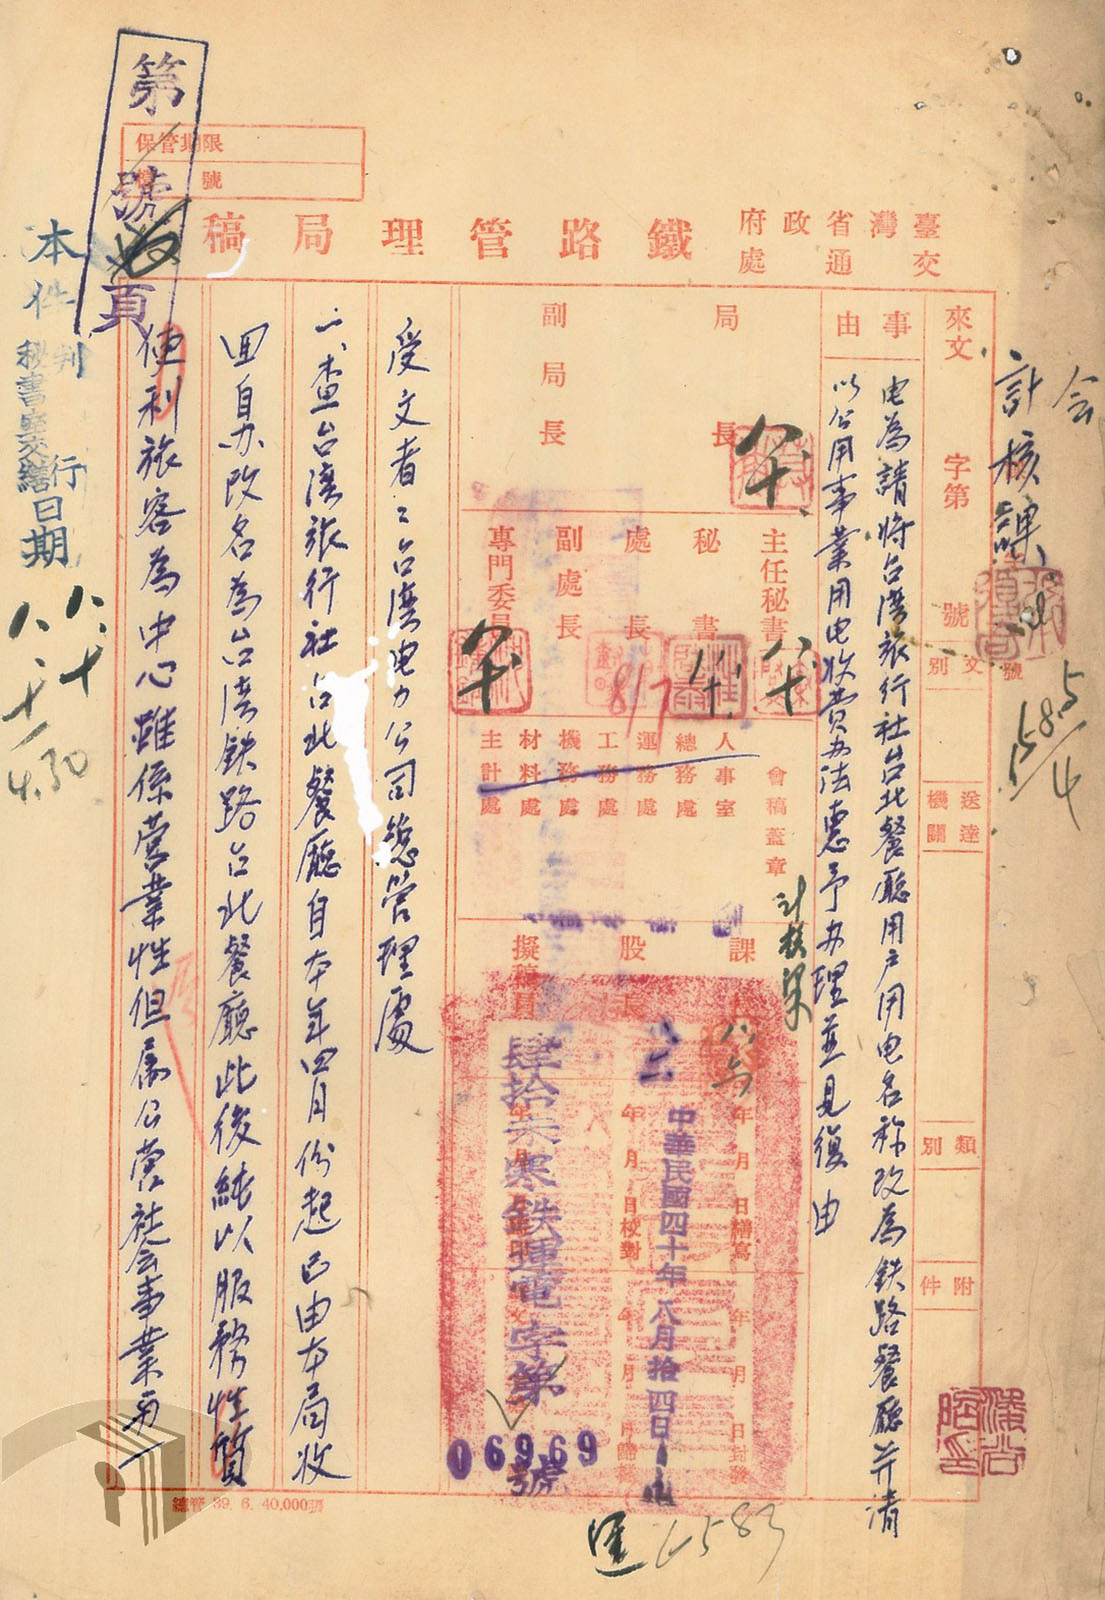 會
計核課
5585/4
臺灣省政府
交通處
鐵路管理局稿
保管期限
檔號
第
號
頁
來文
字第
號
文別
號
送達
機關
類別
附件
事由
电為請將台湾旅行社台北餐廳用户用电名称改為鉄路餐廳并请
以公用事業用电收費办法惠予办理並見復由
局長
副局長
主任秘書
秘書
處長
副處長
專門委員
8/7
會稿蓋章
人事室
總務處
運務處
工務處
機務處
材料處
主計處
計核
課
股長
擬稿員
年月日繕寫
年月日校對
年月日封發
中華民國四十年八月拾四日
肆拾未寒鉄運電字第
06969
號
受文者：台湾电力公司總管理處
一、查台湾旅行社台北餐廳自本年四月份起已由本局收
回自办改名為台湾鉄路台北餐廳此後純以服務性質
便利旅客為中心雖係营業性但屬公营社会事業之一
本件
判行
秘書室交繕日期
八、十
八、十一
4.30
總管 39. 6. 40,000張
6583